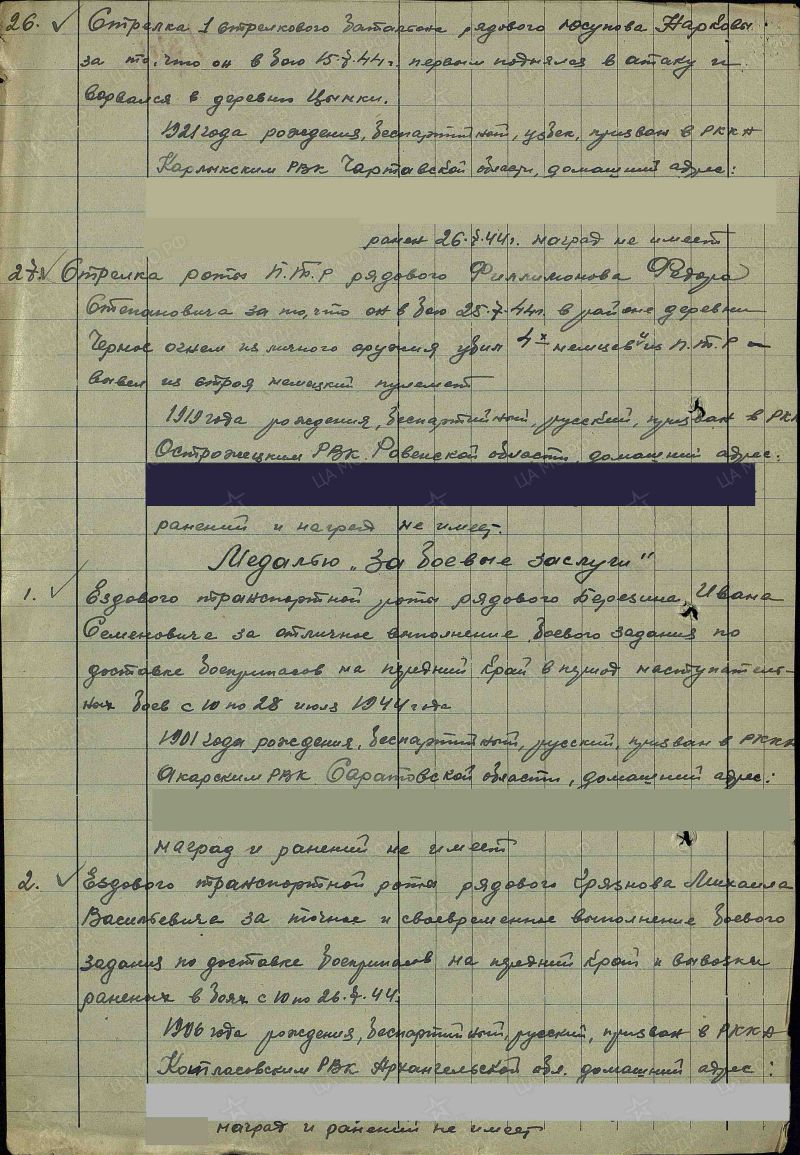 26. Стрелка 1 стрелкового баталиона рядового Юсупова Наркови
за то, что он в бою 15.7.44 г. первым поднялся в атаку и
ворвался в деревню Цынки.
1921 года рождения, беспартийный, узбек, призван в РККА
Карлыкским РВК Чартавской области, домашний адрес:
ранен 26.7.44 г. наград не имеет
27. Стрелка роты П.Т.Р рядового Филлимонова Федора
Степановича за то, что он в бою 25.7.44 г. в районе деревни
Черное огнем из личного оружия убил 4х немцев и из П.Т.Р
вывел из строя немецкий пулемет
1919 года рождения, беспартийный, русский, призван в РКК
Острожецким РВК Ровенской области, домашний адрес:
ранений и наград не имеет.
Медалью „За боевые заслуги"
1. Ездового транспортной роты рядового Березина Ивана
Семеновича за отличное выполнение боевого задания по
доставке боеприпасов на передний край в период наступатель-
ных боев с 10 по 28 июля 1944 года
1901 года рождения, беспартийный, русский, призван в РККА
Акарским РВК Саратовской области, домашний адрес:
наград и ранений не имеет
2. Ездового транспортной роты рядового Грязнова Михаила
Васильевича за точное и своевременное выполнение боевого
задания по доставке боеприпасов на передний край и вывозки
раненых в боях с 10 по 26.7.44.
1906 года рождения, беспартийный, русский, призван в РККА
Котласовским РВК Архангельской обл. домашний адрес:
наград и ранений не имеет